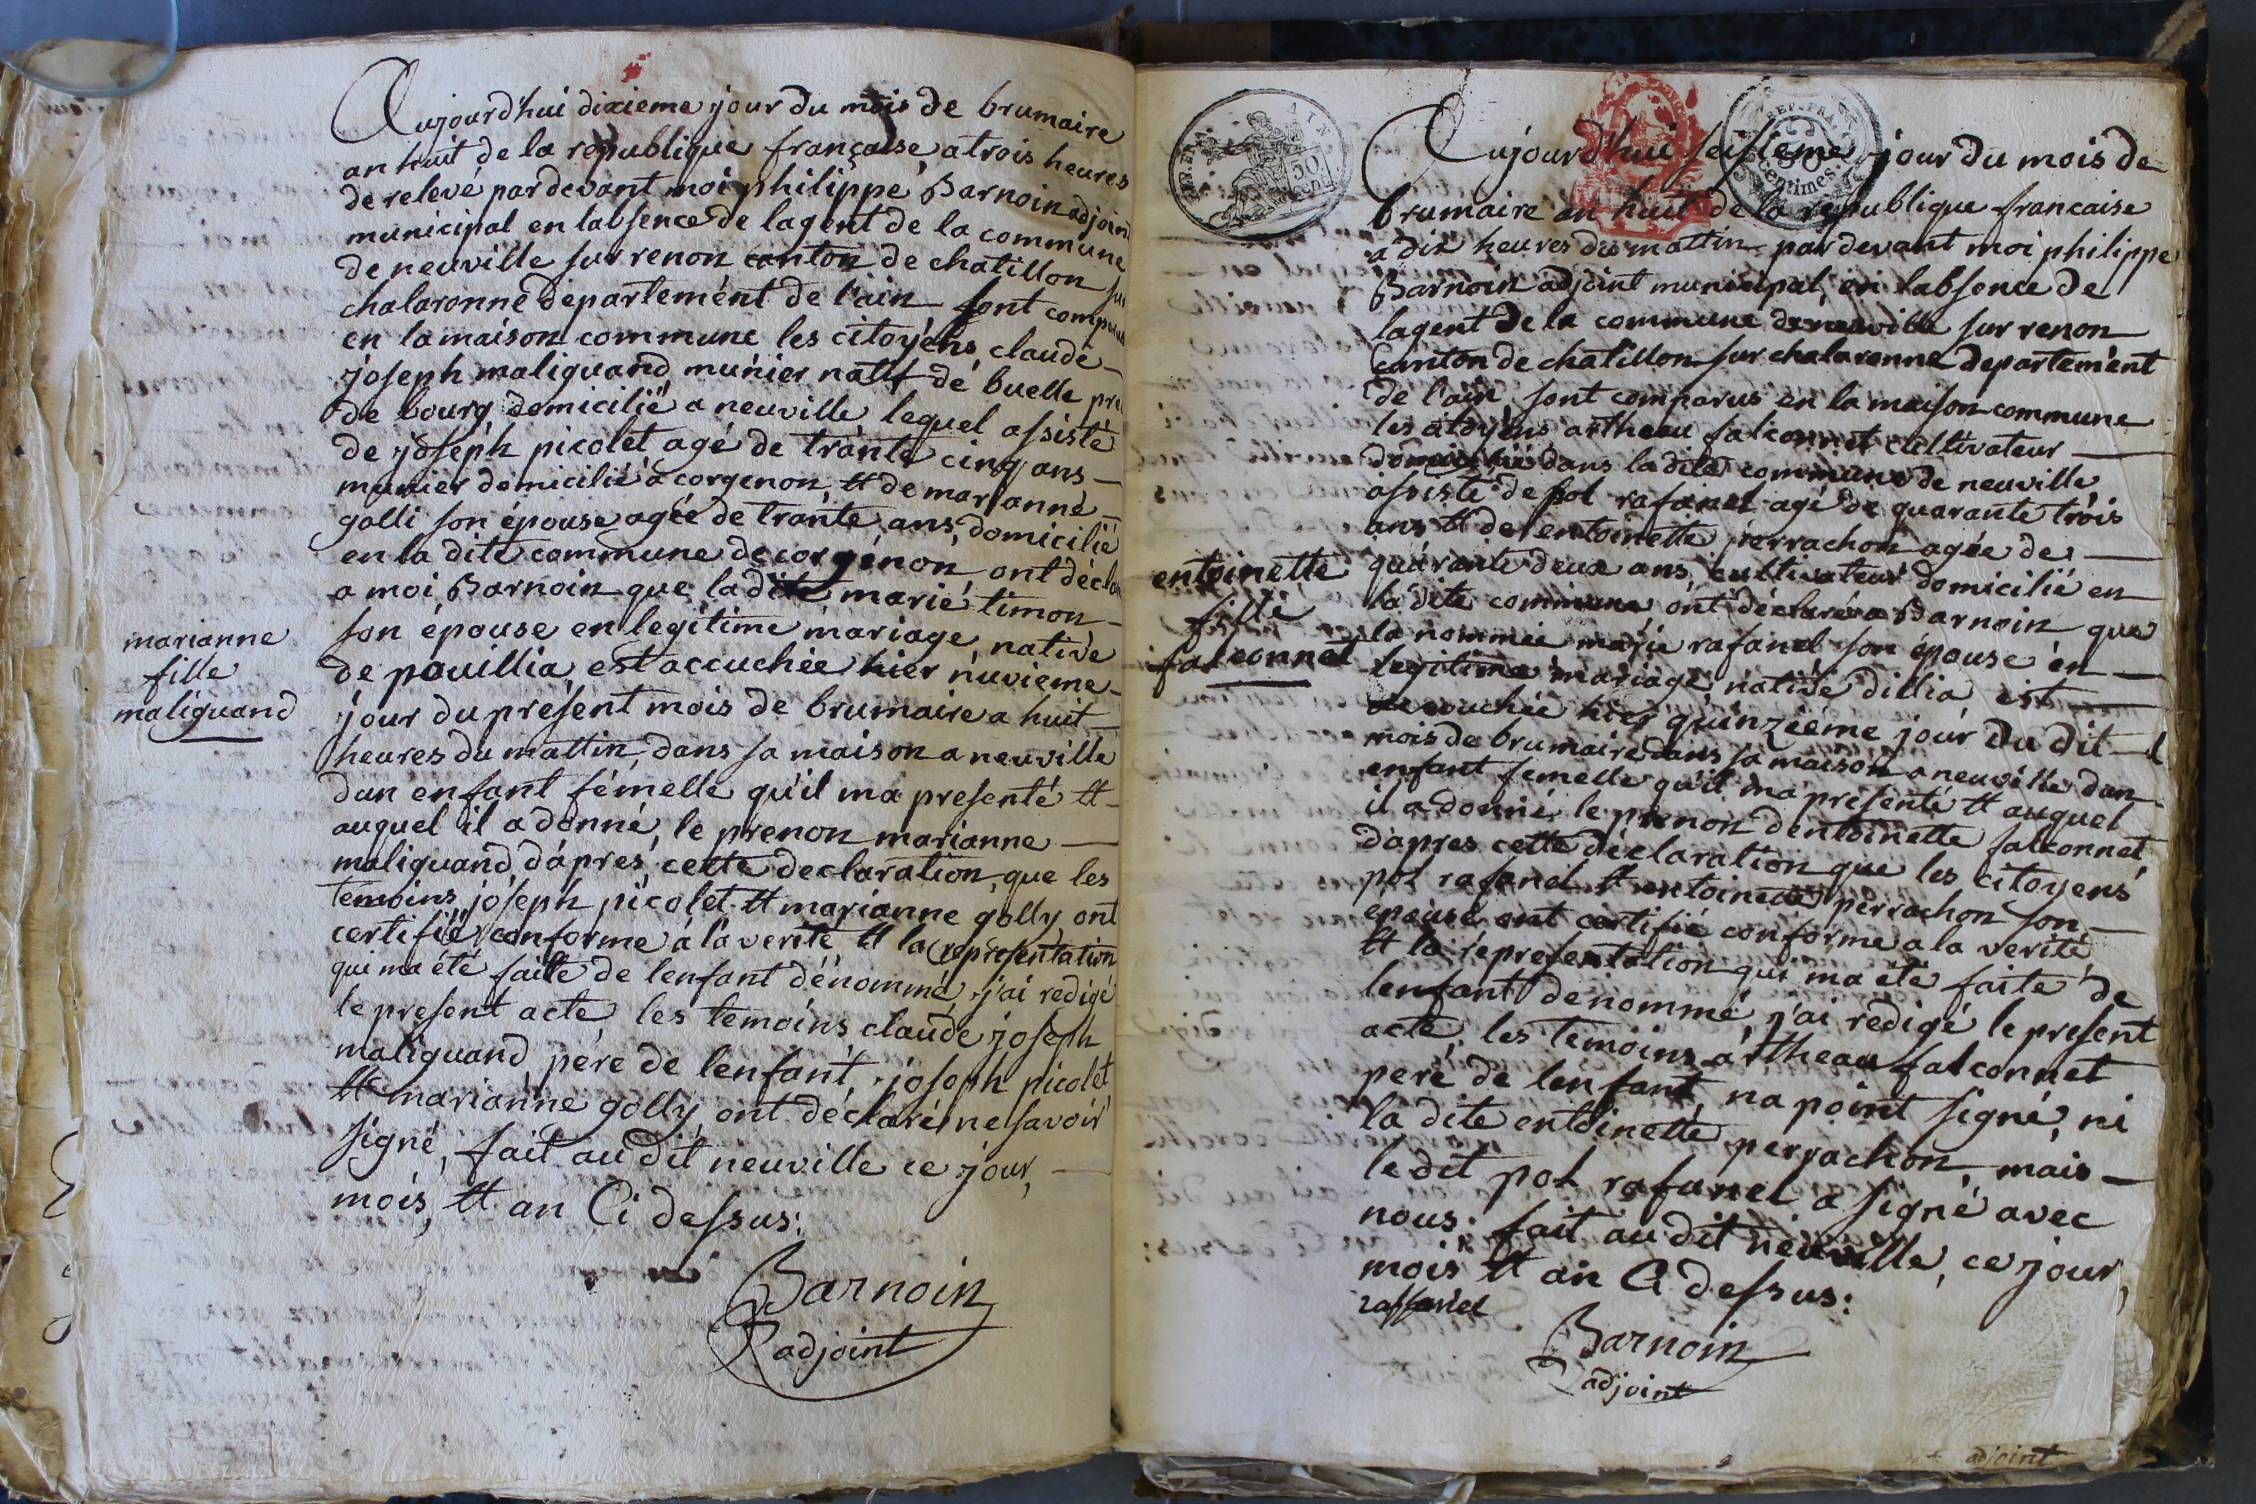 Aujourd'hui dixieme jour du mois de brumaire
an huit de la republique française a trois heures
de relevé par devant moi philippe Barnoin adjoint
municipal en labsence de lagent de la commune
de neuville sur renon canton de chatillon sur
chalaronne departement de l'ain sont comparus
en la maison commune les citoyens claude
joseph maliguand munier natif de buelle pres
de bourg domicilié a neuville lequel assisté
de joseph picolet agé de trante cinq ans
munier domicilié a corgenon et de marianne
golli son épouse agée de trante ans domicilié
en la dite commune de corgenon ont déclaré
a moi Barnoin que la dite marie timon
son épouse en legitime mariage native
de pouillia est accuchée hier nuvieme
jour du présent mois de brumaire a huit
heures du mattin dans sa maison a neuville
dun enfant fémelle qu'il ma presenté et
auquel il a donné le prenon marianne
maliguand d'apres cette declaration que les
temoins joseph picolet et marianne golly ont
certifié conforme à la verité et la representation
qui ma été faite de lenfant dénommé j'ai redigé
le present acte les temoins claude joseph
maliguand pére de lenfant joseph picolet
et marianne golly ont déclaré ne savoir
signé, fait au dit neuville ce jour,
mois, et an Ci dessus:
Barnoin
adjoint
marianne
fille
maliguand
AIN
50
REP. FRA
50
centimes
Aujourd'hui seisieme jour du mois de
brumaire an huit de la republique francaise
a dix heures du mattin par devant moi philippe
Barnoin adjoint municipal en labsence de
lagent de la commune de neuville sur renon
Canton de chatillon sur chalaronne departement
de l'ain sont comparus en la maison commune
les citoyens artheau falconnet cultivateur
domicilié dans la dite commune de neuville
assisté de pol rafanel agé de quarante trois
ans et de entoinette perrachon agée de
quarante deux ans cultivateur domicilié en
la dite commune ont déclaré a Barnoin que
la nommée marie rafanel son épouse en
legitime mariage native dillia est
accouchée hier quinziéme jour du dit
mois de brumaire dans sa maison a neuville dun
enfant femelle qu'il ma présenté et auquel
il a donné le prenon dentoinette falconnet
dapres cette déclaration que les citoyens
pol rafanel et entoinette perrachon son
epouse ont certifié conforme a la verité
et la representation qui ma été faite de
lenfant denommé j'ai redigé le present
acte, les temoins artheau falconnet
peré de lenfant na point signé, ni
la dite entoinette perrachon, mais
le dit pol rafanel a signé avec
nous. fait au dit neuville, ce jour,
mois et an Ci dessus:
raffanel
Barnoin
adjoint
entoinette
fille
falconnet
adjoint